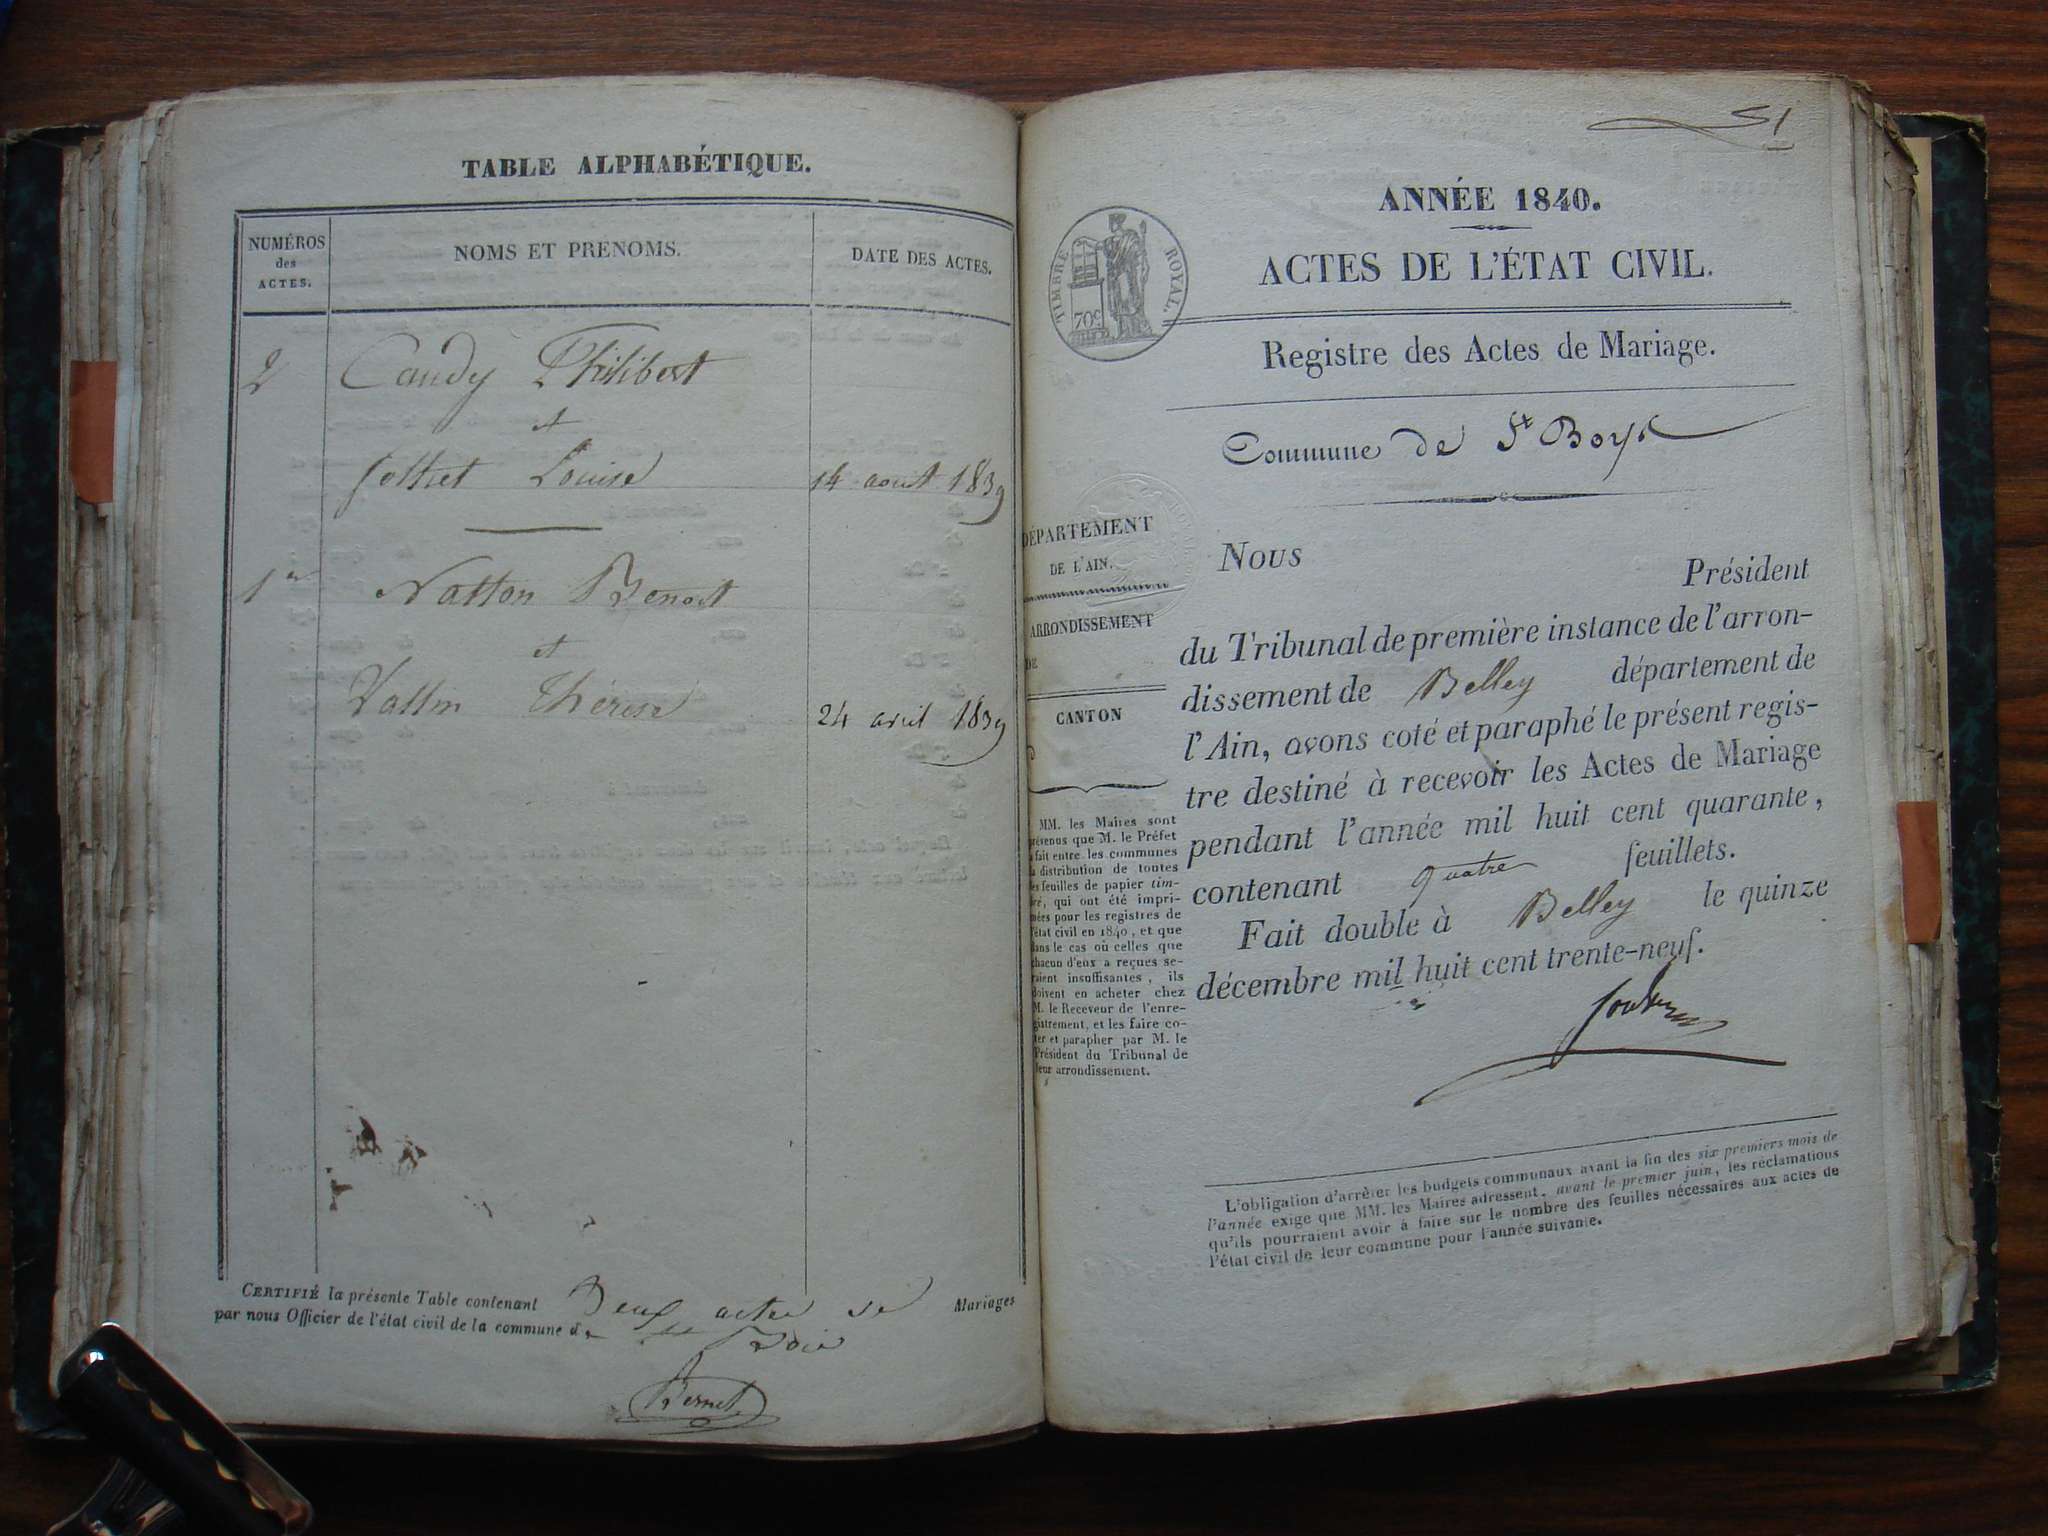 TABLE ALPHABÉTIQUE.
NUMÉROS
des
ACTES.
NOMS ET PRÉNOMS.
DATE DES ACTES.
2
Candy Philibert
et
Jolliet Louise
14 aout 1839
1er
Natton Benoit
et
Vallin Thérese
24 avril 1839
CERTIFIÉ la présente Table contenant Deux actes de Mariages
par nous Officier de l'état civil de la commune de St Bois
Bernet
51
ANNÉE 1840.
ACTES DE L'ÉTAT CIVIL.
TIMBRE ROYAL.
70c
Registre des Actes de Mariage.
Commune de St Boys
DÉPARTEMENT
DE L'AIN.
ARRONDISSEMENT
DE
CANTON
MM. les Maires sont
prévenus que M. le Préfet
a fait entre les communes
la distribution de toutes
les feuilles de papier tim-
bré, qui ont été impri-
mées pour les registres de
l'état civil en 1840, et que
dans le cas où celles que
chacun d'eux a reçues se-
raient insuffisantes, ils
doivent en acheter chez
M. le Receveur de l'enre-
gistrement, et les faire co-
ter et parapher par M. le
Président du Tribunal de
leur arrondissement.
Nous
Président
du Tribunal de première instance de l'arron-
dissement de Belley département de
l'Ain, avons coté et paraphé le présent regis-
tre destiné à recevoir les Actes de Mariage
pendant l'année mil huit cent quarante,
contenant quatre feuillets.
Fait double à Belley le quinze
décembre mil huit cent trente-neuf.
L'obligation d'arrêter les budgets communaux avant la fin des six premiers mois de
l'année exige que MM. les Maires adressent, avant le premier juin, les réclamations
qu'ils pourraient avoir à faire sur le nombre des feuilles nécessaires aux actes de
l'état civil de leur commune pour l'année suivante.